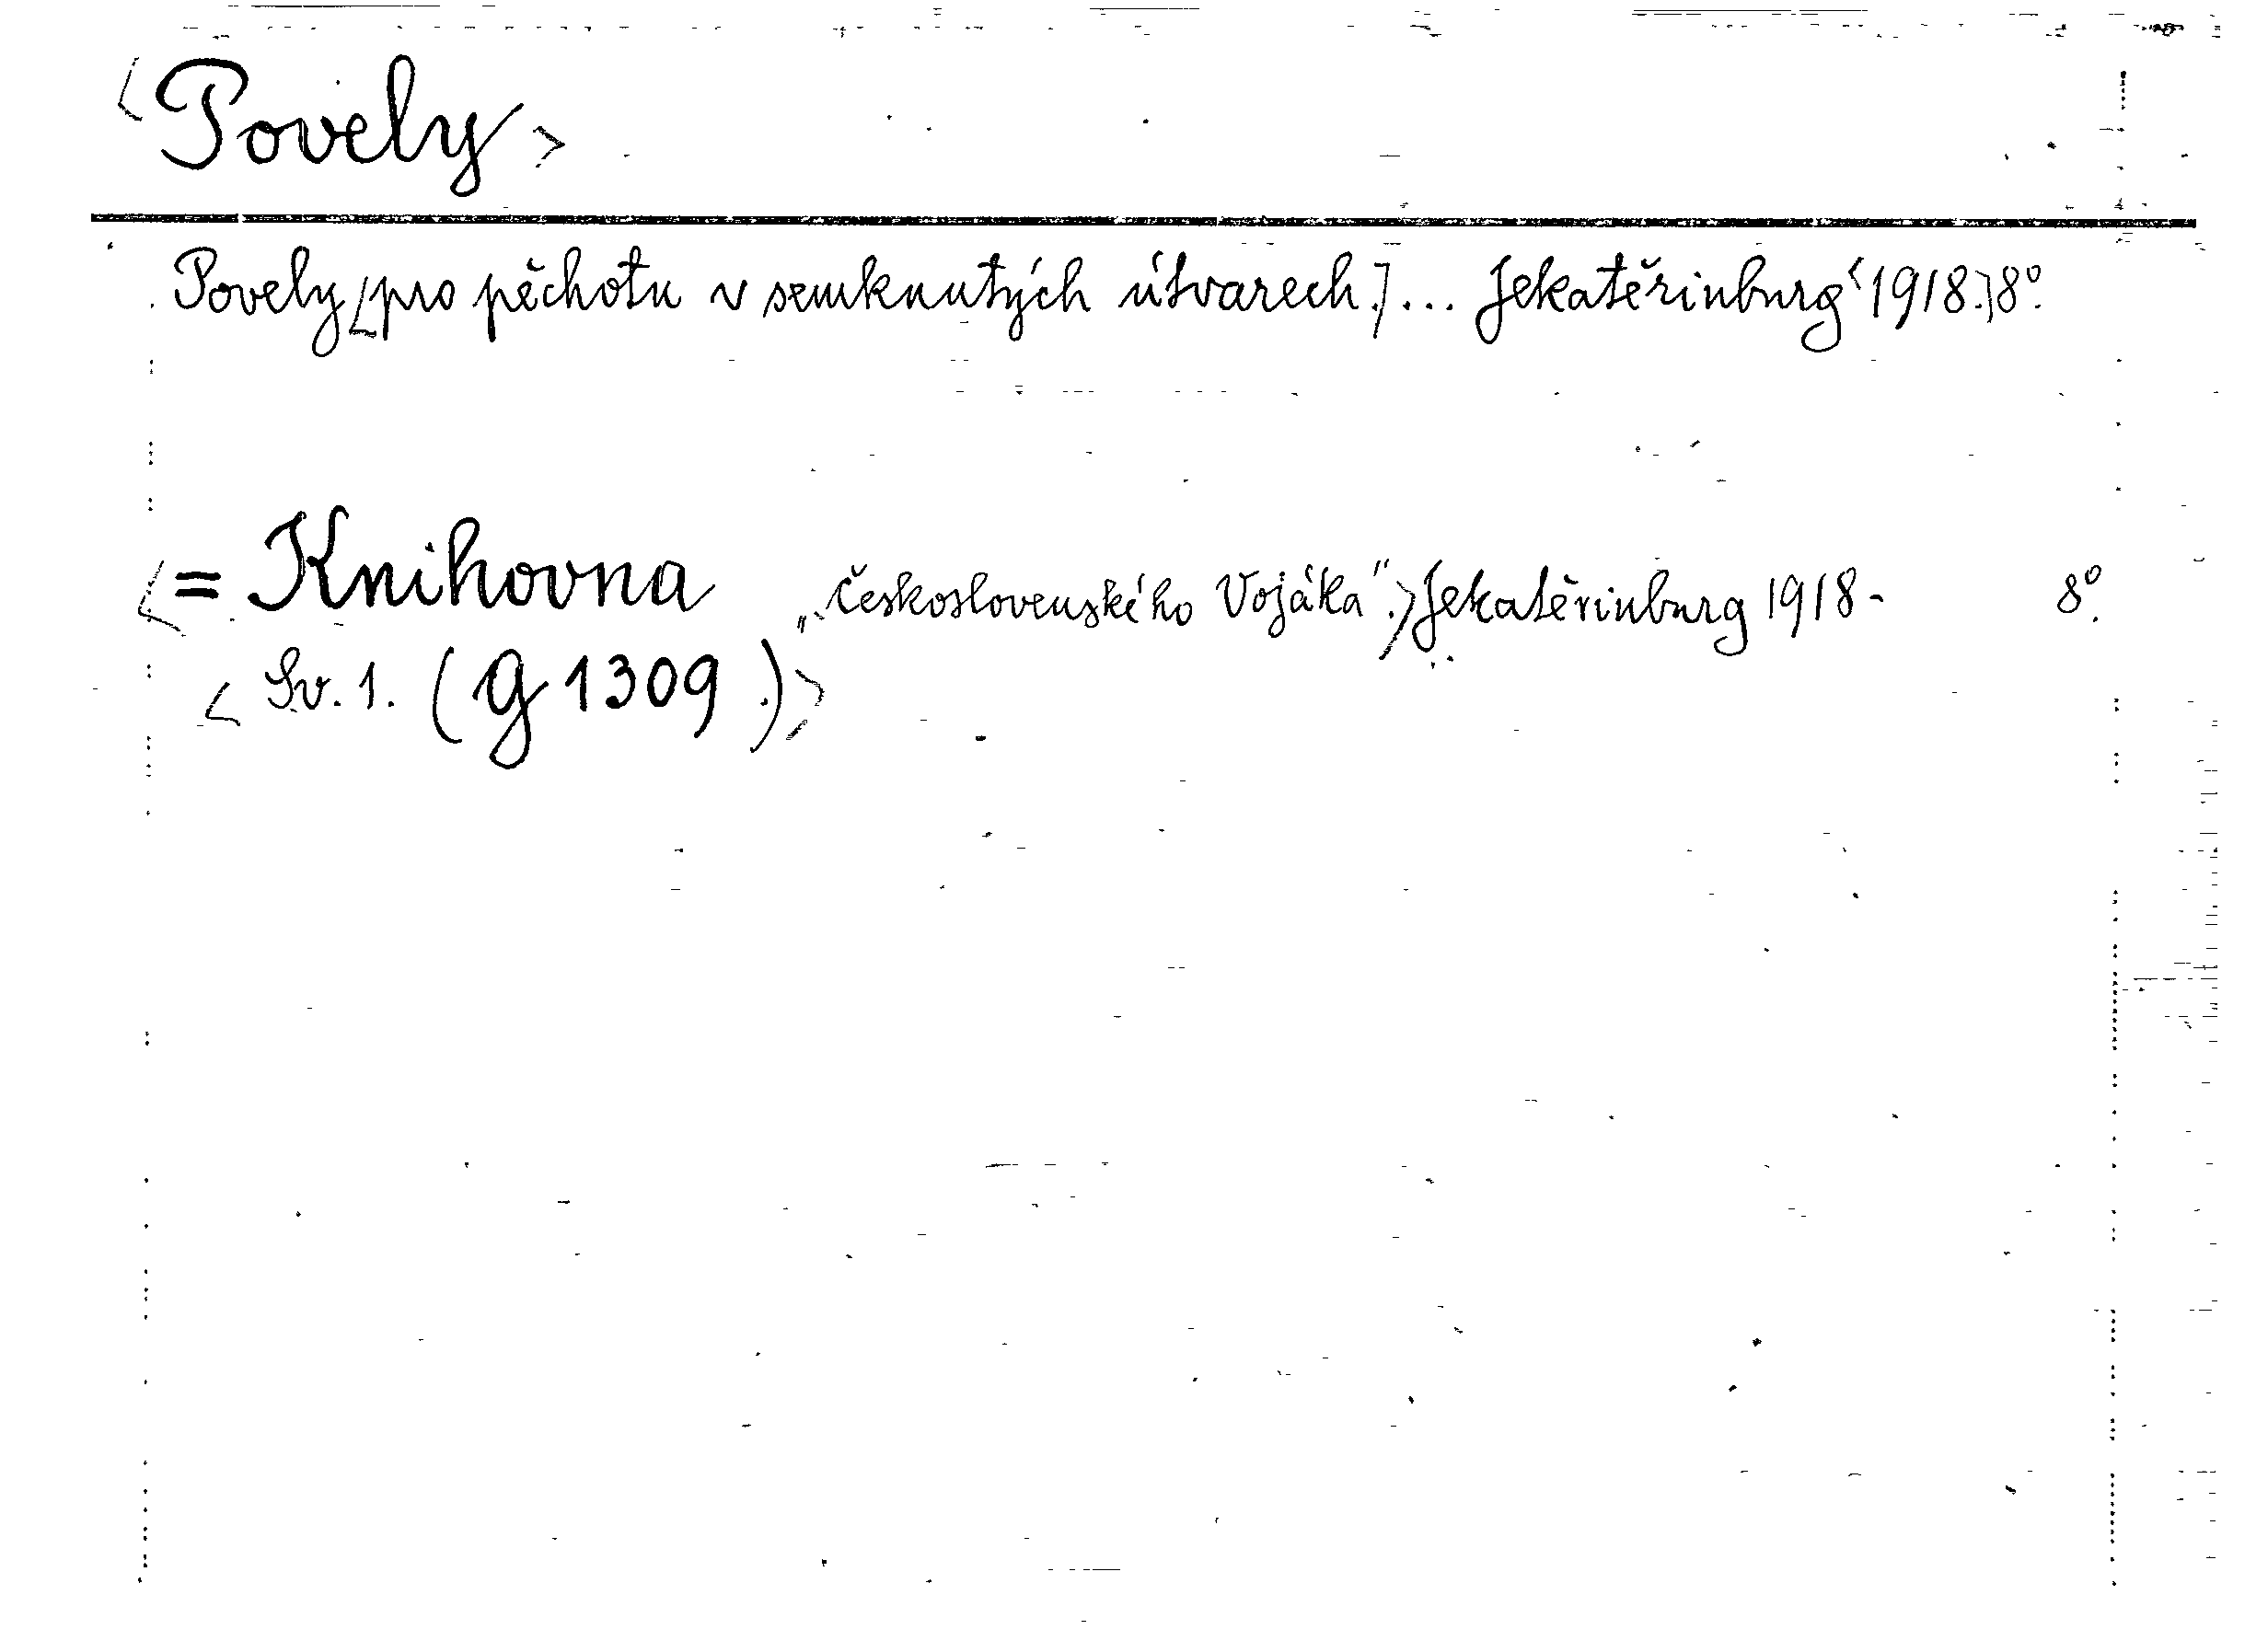 <Povely>
Povely [pro pěchotu v semknutých útvarech.] ... Jekatěřinburg 1918. 8°.
<= Knihovna „Československého Vojáka".> Jekatěrinburg 1918- 8°.
< Sv. 1. (g 1309.)>